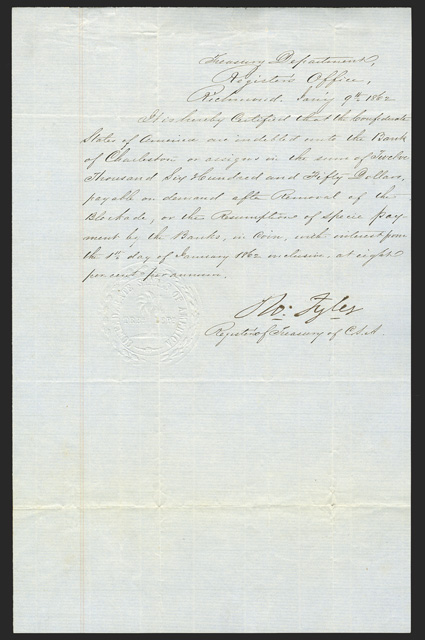 Treasury Department,
Register's Office,
Richmond. Jan'y 9th 1862
It is hereby Certified that the Confederate
States of America are indebted unto the Bank
of Charleston or assigns in the sum of Twelve
Thousand Six Hundred and Fifty Dollars,
payable on demand after Removal of the
Blockade, or the Resumption of specie pay-
ment by the Banks, in Coin, with interest from
the 1st day of January 1862 inclusive, at eight
per cent per annum.
Ro: Tyler
Register of Treasury of C.S.A